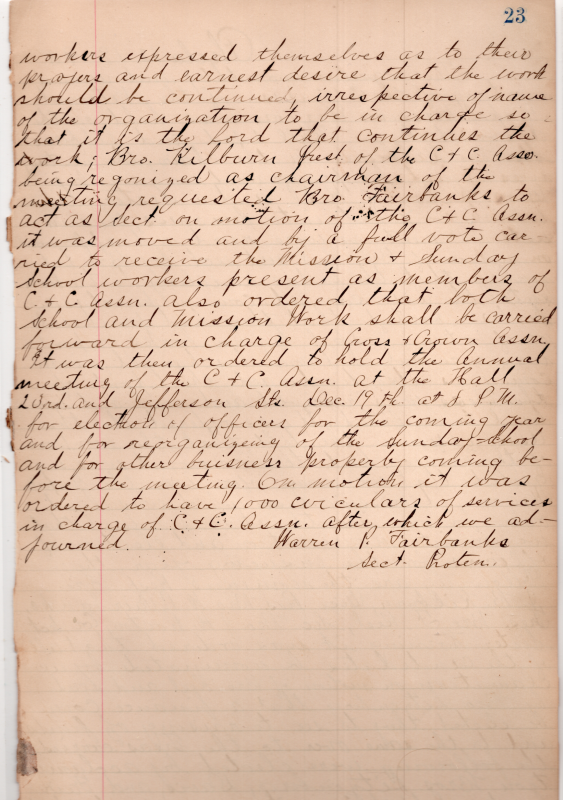 23
workers expressed themselves as to their
prayers and earnest desire that the work
should be continued, irrespective of name
of the organization to be in charge so
that it is the Lord that continues the
work, Bro. Kilburn Prest. of the C & C Asso.
being regonized as chairman of the
meeting requested Bro Fairbanks to
act as Sect. on motion of the C & C Assn.
it was moved and by a full vote car
ried to receive the Mission & Sunday
School workers present as members of
C & C Assn. also ordered that both
School and Mission Work shall be carried
forward in charge of Cross & Crown Assn.
It was then ordered to hold the Annual
meeting of the C & C. Assn. at the Hall
23rd. and Jefferson Sts. Dec. 19th. at 8 P.M.
for election of officers for the coming year
and for reorganizeing of the Sunday-school
and for other buisness properly coming be-
fore the meeting. On motion it was
ordered to have 1000 circulars of services
in charge of C & C. Assn. after which we ad-
journed. Warren P. Fairbanks
Sect. Protem.